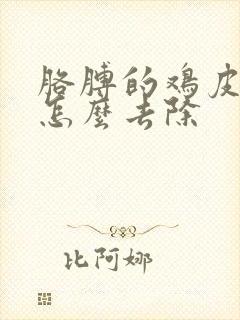 胳膊的鸡皮
怎麼去除
比阿娜